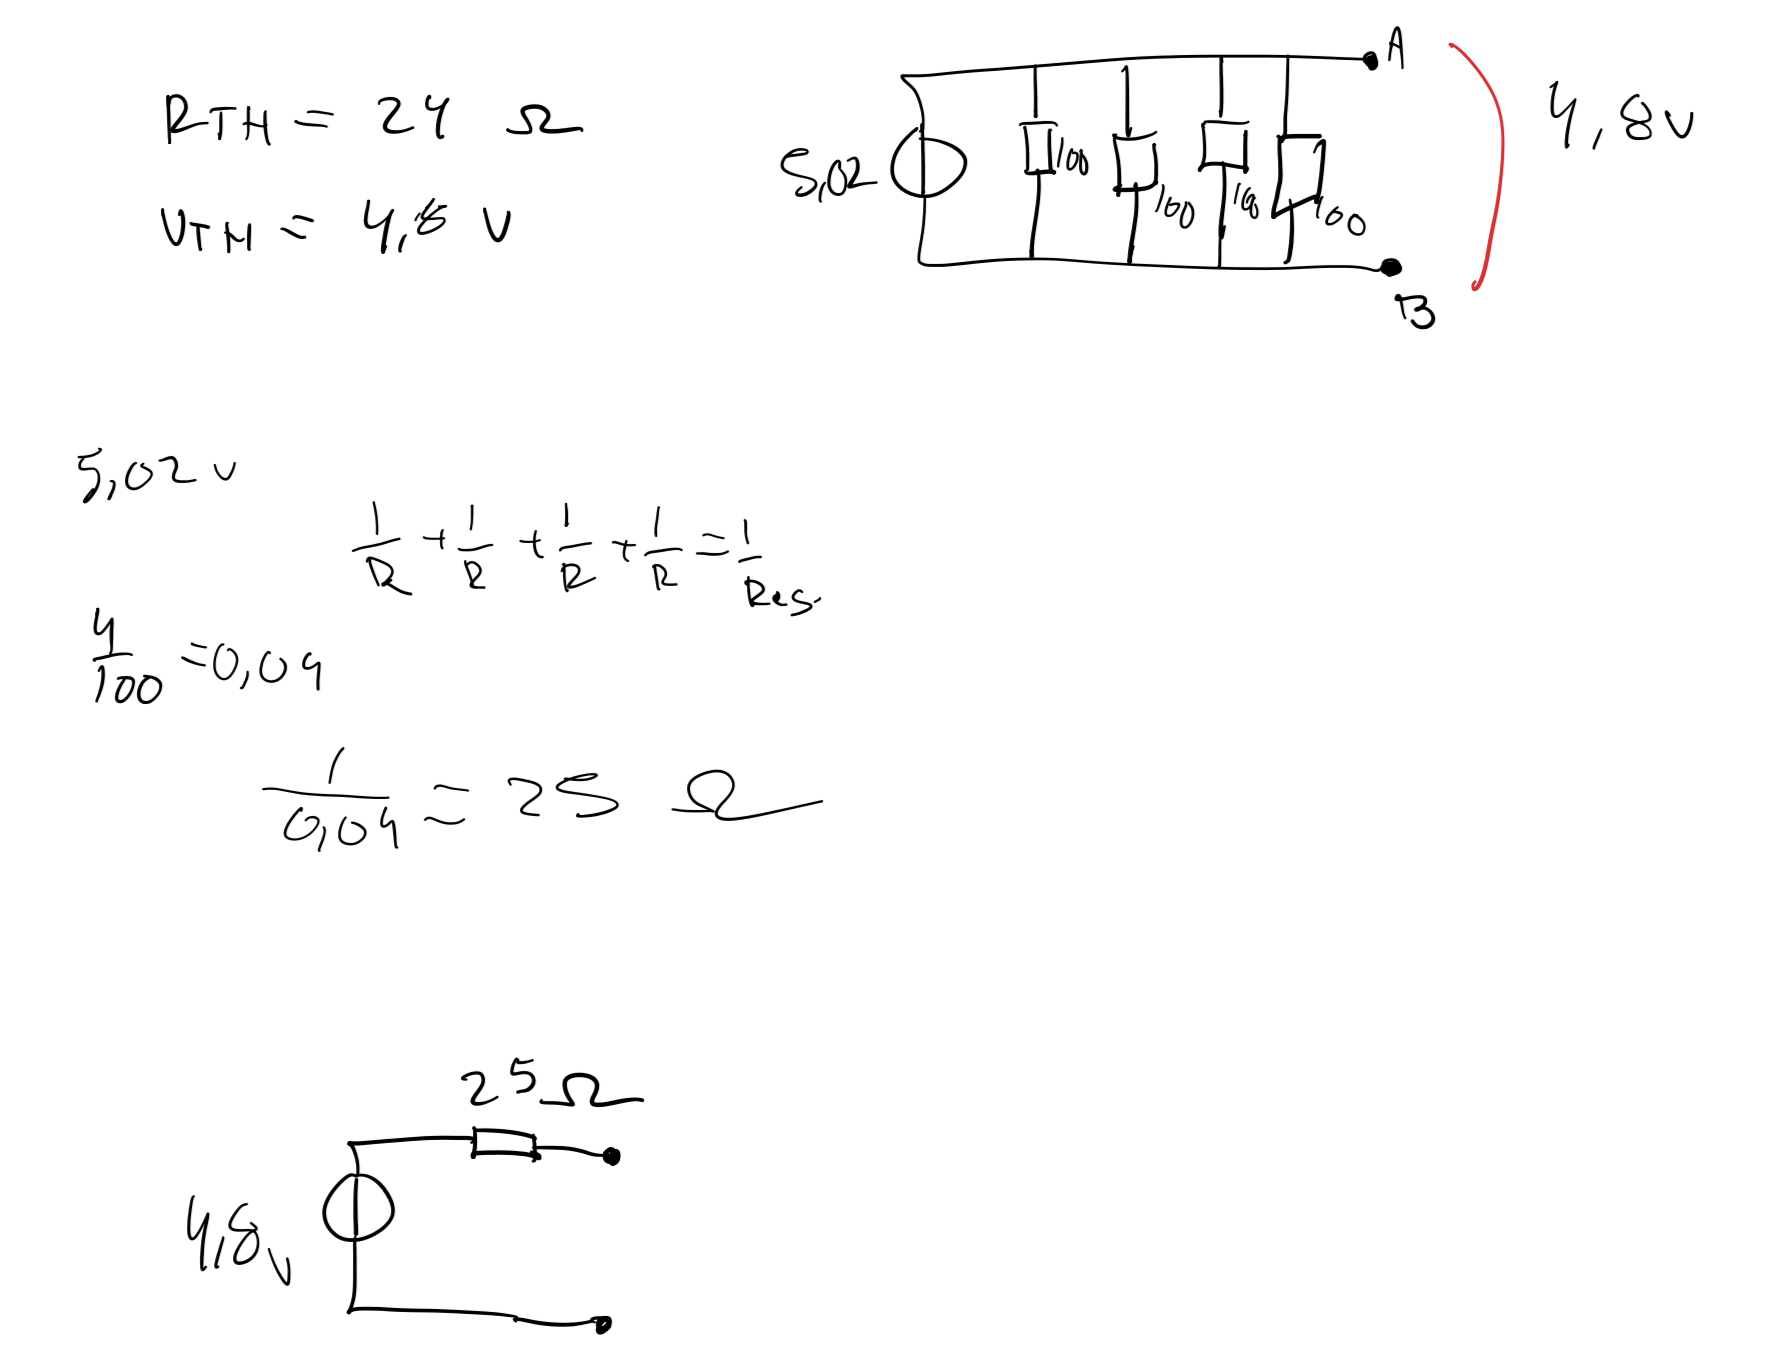 RTH = 24 Ω
UTH = 4,8 V
5,02
100
100
100
100
A
B
4,8v
5,02 v
1/R + 1/R + 1/R + 1/R = 1/Res.
4/100 = 0,04
1/0,04 = 25 Ω
25 Ω
4,8 v